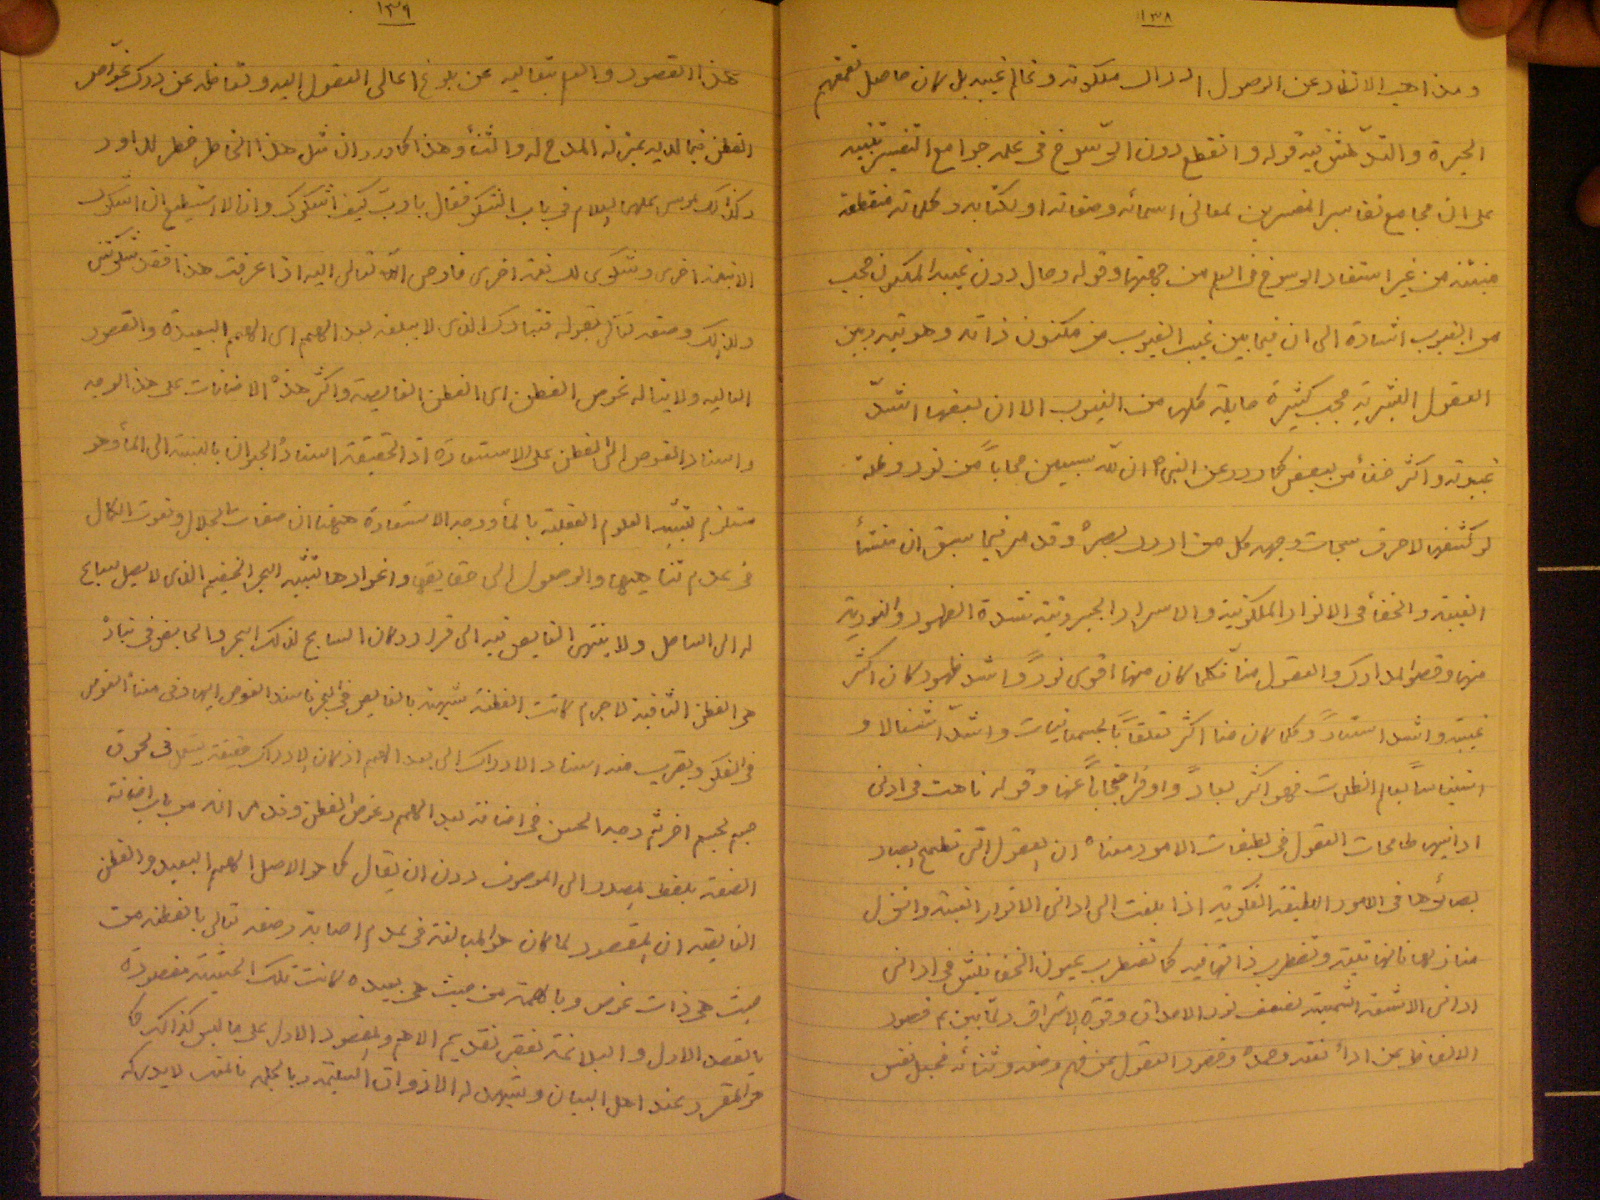 ١٣٨
ومذاهب الانظار عن الوصول الى ادراك ملكوته وعالم غيبه بل كان حاصل تعمقهم
الحيرة والتدلّه فيه قوله وانقطع دون الرّسوخ فى علمه جوامع التفسير تنبيه
على ان مجامع تفاسير المفسرين لمعانى اسمائه وصفاته او لكتابه وكلماته منقطعة
من غير استفاد الرسوخ فى العلم من جهتها وقوله وحال دون غيبه المكنون حجب
من الغيوب اشارة الى ان فيما بين غيب الغيوب من مكنون ذاته وهويته وبين
العقول البشرية حجب كثيرة حايلة كلها من الغيوب الا ان بعضها اشدّ
غيبوبة واكثر خفأ من بعض كما ورد عن النبى ص ان لله سبعين حجاباً من نور وظلمة
لو كشفها لاحرقت سبحات وجهه كل من ادرك بصره وقد مر فيما سبق ان منشأ
الغيبة والخفأ فى الانوار الملكوتية والاسرار الجبروتية شدة الظهور والنورية
منها وقصور المدارك والعقول منّا فكلما كان منها اقوى نوراً واشد ظهور كان اكثر
غيبة واشد استتاراً وكلما كان منا اكثر تعلقاً بالجسمانيات واشدّ اشتغالا و
استيناساً بعالم الظلمات فهو اكثر بعاداً واوفر احتجاباً عنها وقوله تاهت فى ادنى
ادانيها طامحات العقول فى لطيفات الامور معناه ان العقول التى تطمح ابصار
بصائرها فى الامور اللطيفة الفكرية اذا بلغت الى ادانى الانوار الغيبية وانزل
منازلها فانها تتيه وتضطرب ذاتها فيه كما تضطرب عيون الخفافيش فى ادانى
ادانى الاشعة الشمسية لضعف نور الاحداق وقوة الاشراق ولما بين ع قصور
الالفاظ عن ادأ نعته وحده وقصور العقول عن فهم وصفه وثنائه فجعل نفس
١٣٩
هذا القصور والعلم بتعاليه عن بلوغ اعالى العقول اليه وتعاظمه عن درك غوّاص
الفطن فيما لديه بمنزلة المدح له والثنأ وهذا كما ورد ان مثل هذا الخاطر خطر لداود
وكذلك لموسى عليهما السلام فى باب الشكر فقال يا رب كيف اشكرك وانا لا استطيع ان اشكرك
الا بنعمة اخرى وشكرى لك نعمة اخرى فاوحى الله تعالى اليه اذا عرفت هذا فقد شكرتنى
ولذلك وصفه تعالى بقوله فتبارك الذى لا يبلغه بعد الهمم اى الهمم البعيدة والقصود
العاليه ولا يناله غوص الفطن اى الفطن الغايصة واكثر هذه الاضافات على هذا الوجه
واسناد الغوص الى الفطن على الاستعارة اذ الحقيقة اسناده الحيوان بالنسبة الى المأ وهو
مستلزم لتشبيه العلوم العقلية بالمأ ووجه الاستعارة ههنا ان صفات الجلال ونعوت الكمال
فى عدم تناهيها والوصول الى حقايقها واغوارها تشبه البحر الخضم الذى لا يصل سباح
له الى الساحل ولا ينتهى الغايص فيه الى قرار وكان السابح لذلك البحر والخايض فى تياره
هى الفطن الثاقبة لا جرم كانت الفطنة شبيهة بالغايص فى البحر فاسند الغوص اليها وفى معناه الغوص
فى الفكر ويقرب منه اسناد الادراك الى بعد الهمم اذ كان الادراك حقيقة فى لحوق
جسم لجسم اخر ثم وجه الحسن فى اضافة بعد الهمم وغوص الفطن وقد مر انه من باب اضافة
الصفة بلفظ المصدر الى الموصوف دون ان يقال كما هو الاصل الهمم البعيد والفطن
الغايصة ان المقصود لما كان هو المبالغة فى عدم اصابة وصفه تعالى بالفطنة من
حيث هى ذات غوص وبالهمة من حيث هى بعيده كانت تلك الحيثية مقصودة
بالقصد الاول والبلاغة تقتضى تقديم الاهم والمقصود الاول على ما ليس كذلك كما
هو المقرر عند اهل البيان ويشهد له الاذواق السليمة وبالجملة